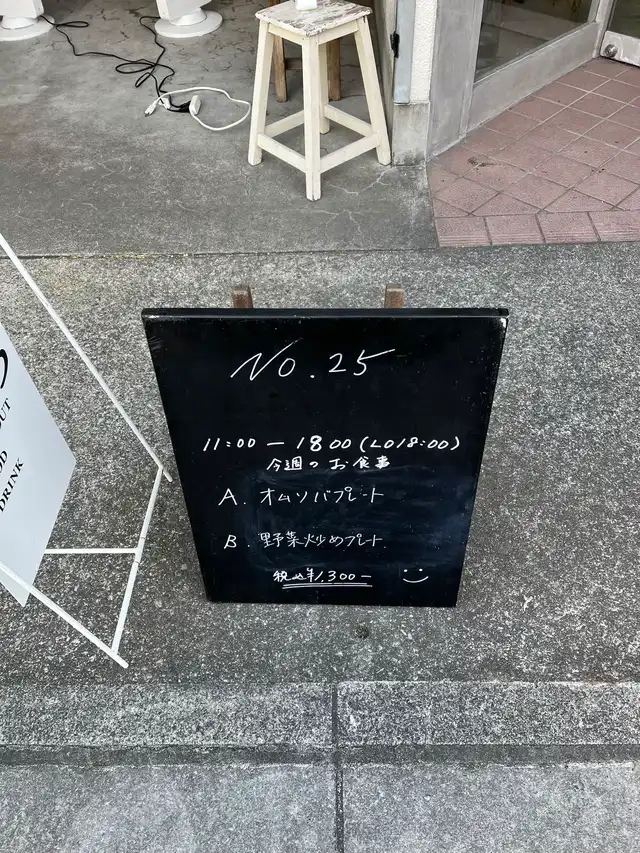 No.25
11:00 — 1800 (LO18:00)
今週のお食事
A. オムソバプレート
B. 野菜炒めプレート
税込¥1,300-
OUT
DRINK